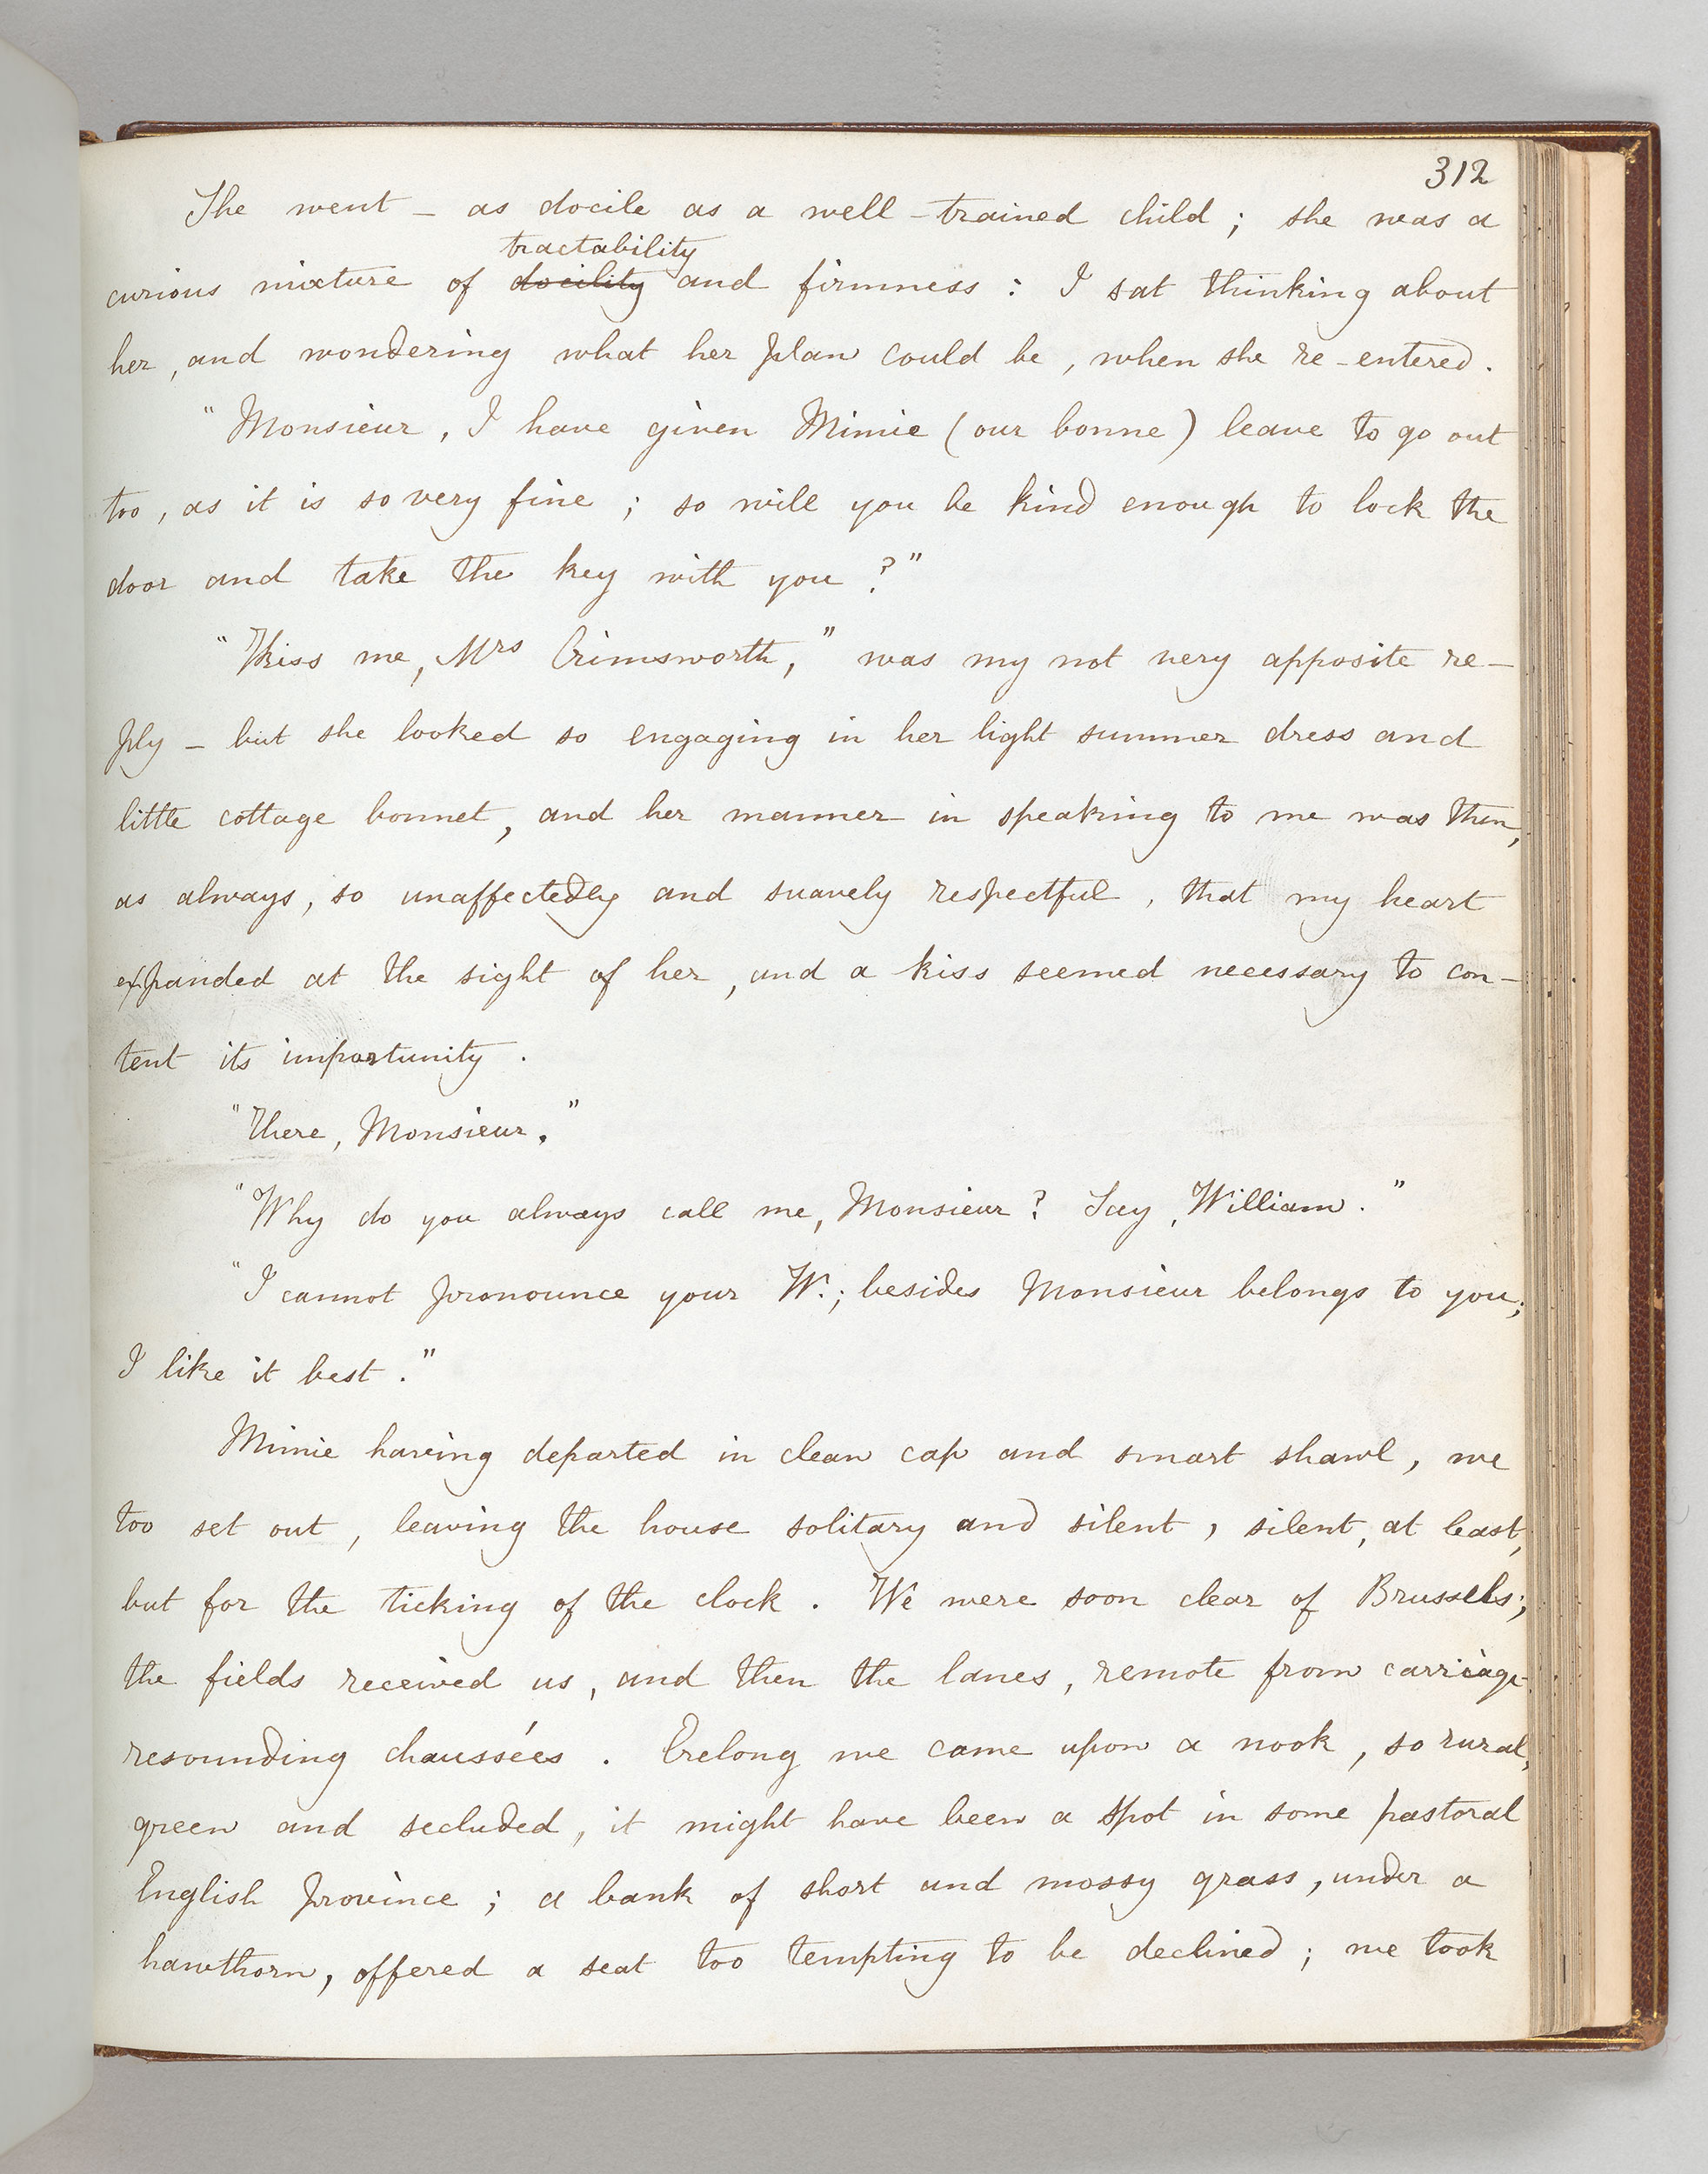 312
She went – as docile as a well-trained child; she was a
tractability
curious mixture of docility and firmness: I sat thinking about
her, and wondering what her plan could be, when she re-entered.
"Monsieur, I have given Mimie (our bonne) leave to go out
too, as it is so very fine; so will you be kind enough to lock the
door and take the key with you?"
"Kiss me, Mrs Crimsworth," was my not very apposite re-
ply – but she looked so engaging in her light summer dress and
little cottage bonnet, and her manner in speaking to me was then,
as always, so unaffectedly and suavely respectful, that my heart
expanded at the sight of her, and a kiss seemed necessary to con-
tent its importunity.
"There, Monsieur."
"Why do you always call me, Monsieur? Say, William."
"I cannot pronounce your W.; besides Monsieur belongs to you;
I like it best."
Mimie having departed in clean cap and smart shawl, we
too set out, leaving the house solitary and silent, silent, at least,
but for the ticking of the clock. We were soon clear of Brussels;
the fields received us, and then the lanes, remote from carriage-
resounding chaussées. Erelong we came upon a nook, so rural,
green and secluded, it might have been a spot in some pastoral
English province; a bank of short and mossy grass, under a
hawthorn, offered a seat too tempting to be declined; we took